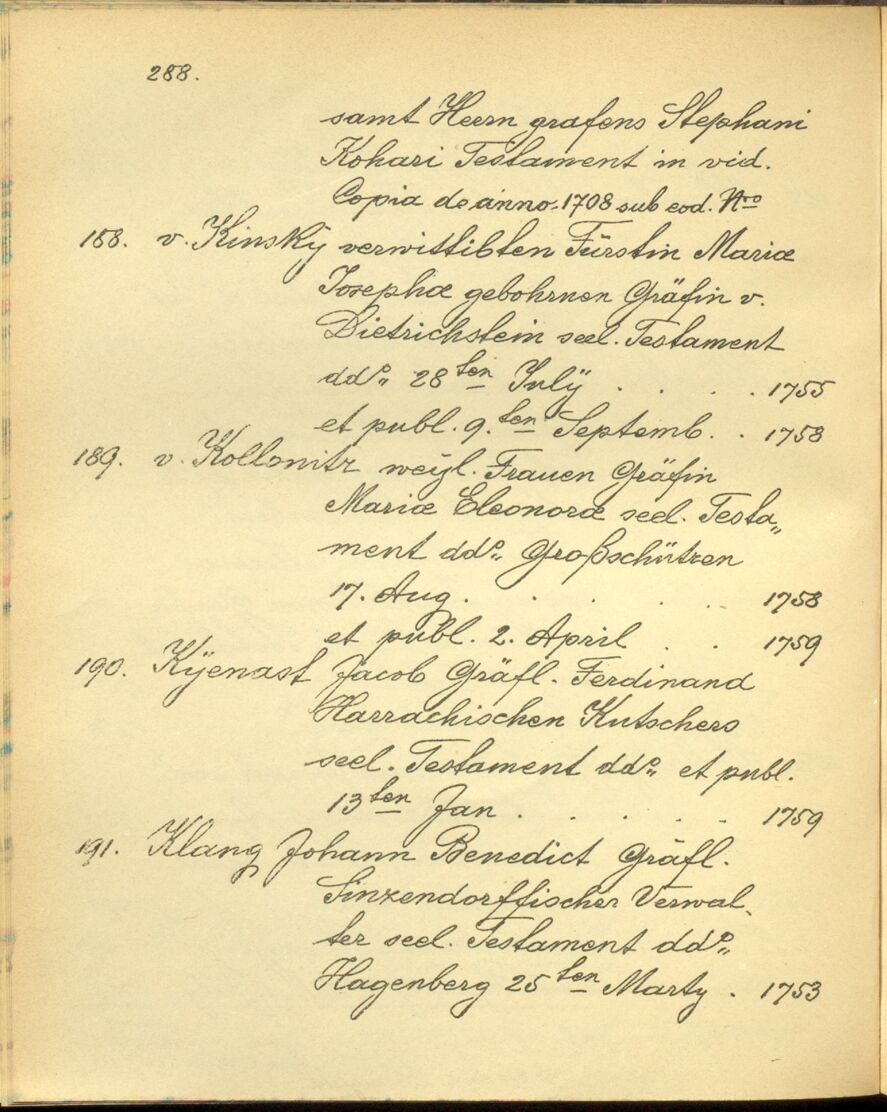 288.
samt Herrn grafens Stephani
Kohari Testament in vid.
Copia de anno 1708 sub eod. Nro
188. v. Kinskÿ verwittibten Fürstin Mariæ
Josephæ gebohrnen Gräfin v.
Dietrichstein seel. Testament
ddo. 28ten Julÿ . . . . 1755
et publ. 9.ten Septemb. . 1758
189. v. Kollonitz weyl. Frauen Gräfin
Mariæ Eleonoræ seel. Testa„
ment ddo. Großschützen
17. Aug. . . . . . 1758
et publ. 2. April . . . 1759
190. Kÿenast Jacob Gräfl. Ferdinand
Harrachischen Kutschers
seel. Testament ddo. et publ.
13ten Jan . . . . . . 1759
191. Klang Johann Benedict Gräfl.
Sinzendorffischer Verwal„
ter seel. Testament ddo.
Hagenberg 25ten Marty . 1753